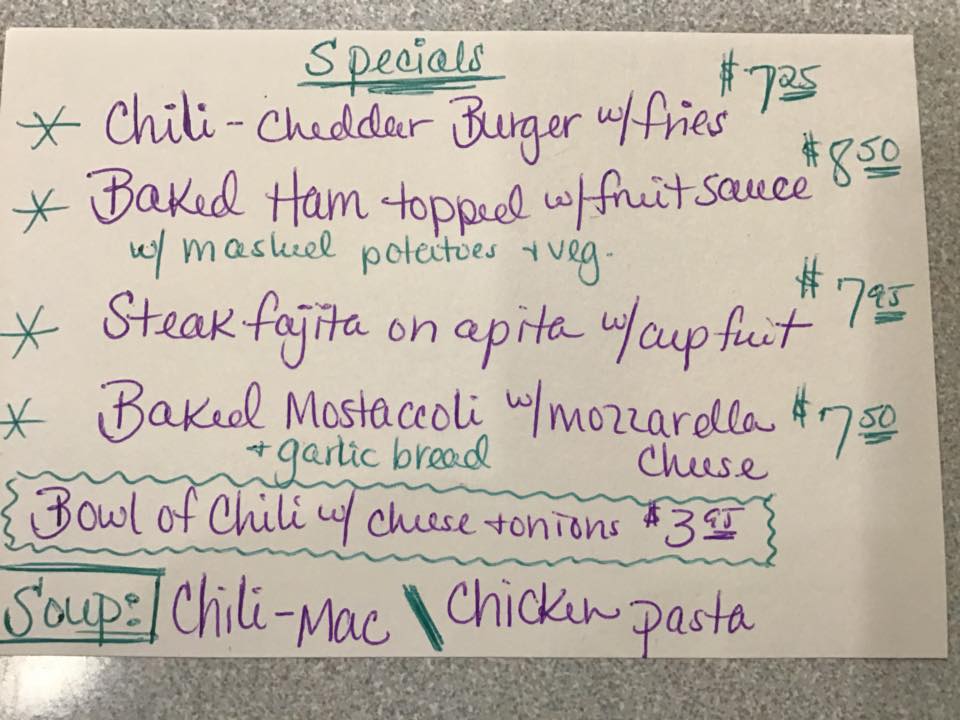 Specials
* Chili-Cheddar Burger w/fries $7.25
* Baked Ham topped w/fruit sauce $8.50
w/ mashed potatoes + veg.
* Steak fajita on a pita w/cup fuit $7.95
* Baked Mostaccoli w/mozzarella $7.50
+ garlic bread cheese
Bowl of Chili w/ cheese + onions $3.95
Soup: Chili-Mac \ Chicken pasta